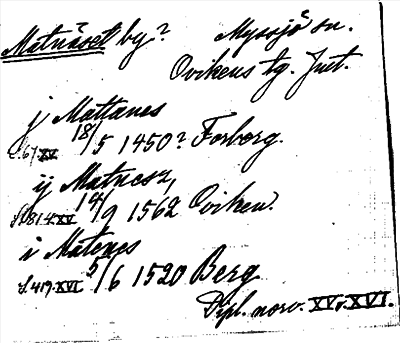 Matnäset by? Myssjö sn.
Ovikens tg. Jmt.
j Mattanes
s.67 XV 18/5 1450? Forberg.
ij Matnesz,
s.81 XV 14/9 1562 Oviken.
i Matenes
s.419 XVI 5/6 1520 Berg
Dipl. norv. XV, XVI.